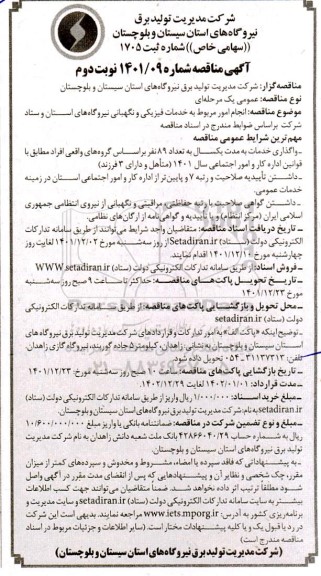 شرکت مدیریت تولید برق
نیروگاه‌های استان سیستان و بلوچستان
((سهامی خاص)) شماره ثبت ۱۷۰۵
آگهی مناقصه شماره ۱۴۰۱/۰۹ نوبت دوم
مناقصه‌گزار: شرکت مدیریت تولید برق نیروگاه‌های استان سیستان و بلوچستان
نوع مناقصه: عمومی یک مرحله‌ای
موضوع مناقصه: انجام امور مربوط به خدمات فیزیکی و نگهبانی نیروگاه‌های استان و ستاد
شرکت براساس ضوابط مندرج در اسناد مناقصه
مهم‌ترین شرایط عمومی مناقصه
ـ واگذاری خدمات به مدت یکسال به تعداد ۸۹ نفر براساس گروه‌های واقعی افراد مطابق با
قوانین اداره کار و امور اجتماعی سال ۱۴۰۱ (متأهل و دارای ۳ فرزند)
ـ داشتن تأییدیه صلاحیت و رتبه ۷ و پایین‌تر از اداره کار و امور اجتماعی استان در زمینه
خدمات عمومی.
ـ داشتن گواهی صلاحیت یا رتبه حفاظتی، مراقبتی و نگهبانی از نیروی انتظامی جمهوری
اسلامی ایران (مرکز انتظام) و یا تأییدیه و گواهی‌نامه از ارگان‌های نظامی.
ـ تاریخ دریافت اسناد مناقصه: متقاضیان واجد شرایط می‌توانند از طریق سامانه تدارکات
الکترونیکی دولت (ستاد) Setadiran.ir از روز سه‌شنبه مورخ ۱۴۰۱/۱۲/۰۲ لغایت روز
چهارشنبه مورخ ۱۴۰۱/۱۲/۱۰ اقدام نمایند.
ـ فروش اسناد: از طریق سامانه تدارکات الکترونیکی دولت (ستاد) WWW.setadiran.ir
ـ تاریخ تحویل پاکت‌های مناقصه: حداکثر تا ساعت ۹ صبح روز سه‌شنبه
مورخ ۱۴۰۱/۱۲/۲۳
ـ محل تحویل و بازگشایی پاکت‌های مناقصه: از طریق سامانه تدارکات الکترونیکی
دولت (ستاد) setadiran.ir
ـ توضیح اینکه «پاکت الف» به امور تدارکات و قراردادهای شرکت مدیریت تولید برق نیروگاه های
استان سیستان و بلوچستان به نشانی: زاهدان، کیلومتر ۵ جاده گوربند، نیروگاه گازی زاهدان
تلفن: ۳۱۱۳۷۳۱۳ـ۰۵۴ تحویل داده شود.
ـ تاریخ بازگشایی پاکت‌های مناقصه: ساعت ۱۰ صبح روز سه‌شنبه مورخ: ۱۴۰۱/۱۲/۲۳
ـ مدت قرارداد: ۱۴۰۲/۰۱/۰۱ لغایت ۱۴۰۲/۱۲/۲۹
ـ مبلغ خرید اسناد: ۱/۰۰۰/۰۰۰ ریال واریز از طریق سامانه تدارکات الکترونیکی دولت (ستاد)
setadiran.ir به نام: شرکت مدیریت تولید برق نیروگاه‌های استان سیستان و بلوچستان
ـ مبلغ و نوع تضمین شرکت در مناقصه: ضمانتنامه بانکی یا واریز مبلغ ۱۰/۶۰۰/۰۰۰/۰۰۰
ریال به شماره حساب بانک ملت شعبه دانش زاهدان به نام شرکت مدیریت
تولید برق نیروگاه‌های استان سیستان و بلوچستان.
ـ به پیشنهاداتی که فاقد سپرده یا امضاء، مشروط و مخدوش و سپرده‌های کمتر از میزان
مقرر، چک شخصی و نظایر آن و پیشنهادهایی که پس از انقضای مدت مقرر در آگهی واصل
شود مطلقا ترتیب اثر داده نخواهد شد. ضمنا متقاضیان می‌توانند جهت کسب اطلاعات
بیشتر به سایت سامانه تدارکات الکترونیکی دولت (ستاد) setadiran.ir و سایت مدیریت و
برنامه‌ریزی کشور به آدرس: www.iets.mporg.ir مراجعه نمایند. بدیهی است این شرکت
در رد یا قبول یک و یا کلیه پیشنهادات مختار است (سایر اطلاعات و جزئیات مربوط در اسناد
مناقصه مندرج است)
(شرکت مدیریت تولید برق نیروگاه‌های استان سیستان و بلوچستان)